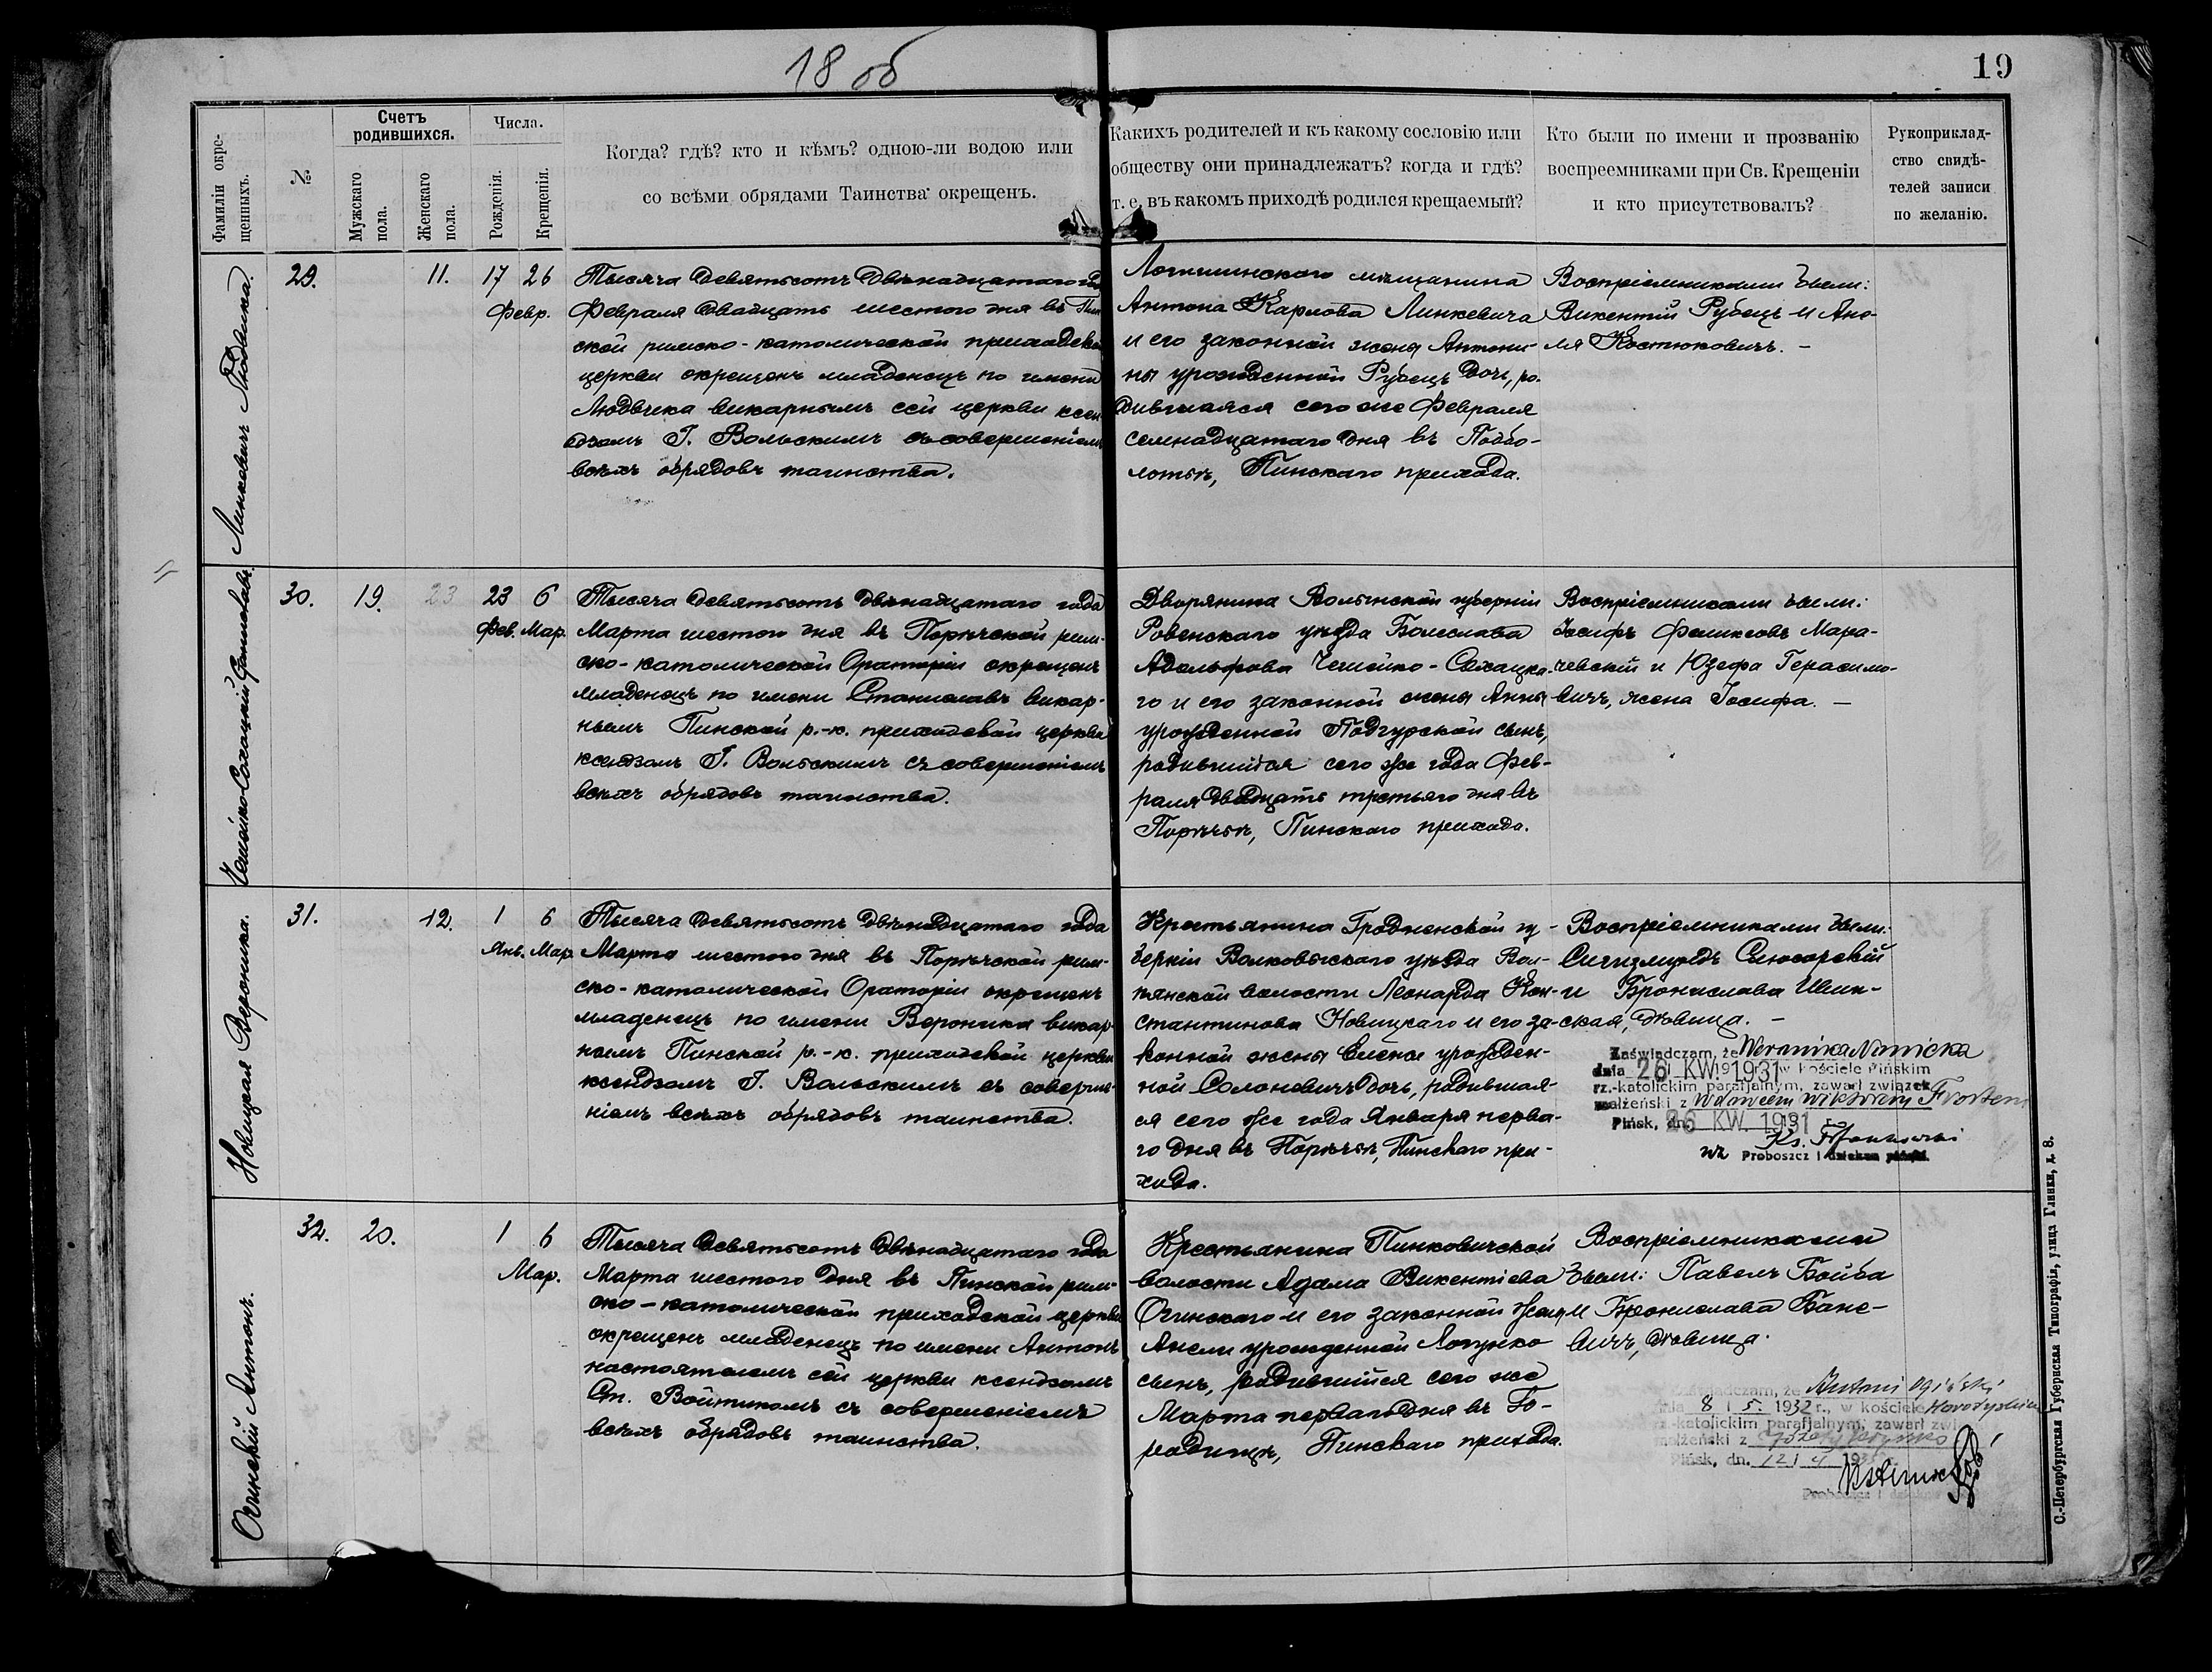 18 об
19
Фамиліи окрещенныхъ.
№
Счетъ родившихся.
Мужскаго пола.
Женскаго пола.
Числа.
Рожденія.
Крещенія.
Когда? гдѣ? кто и кѣмъ? одною-ли водою или
со всѣми обрядами Таинства окрещенъ.
Какихъ родителей и къ какому сословію или
обществу они принадлежатъ? когда и гдѣ?
т. е. въ какомъ приходѣ родился крещаемый?
Кто были по имени и прозванію
воспреемниками при Св. Крещеніи
и кто присутствовалъ?
Рукоприклад-
ство свидѣ-
телей записи
по желанію.
Линкевичъ Людвика.
29.
11.
17 26
Февр.
Тысяча девятьсотъ двѣнадцатаго
Февраля двадцать шестого дня въ Пин
ской римско-католической приходской
церкви окрещенъ младенецъ по имени
Людвика викарнымъ сей церкви ксен
дзомъ І. Вольскимъ съ совершеніемъ
всѣхъ обрядовъ таинства.
Логишинскаго мѣщанина
Антона Карлова Линкевича
и его законной жены Антони-
ны урожденной Рубецъ дочь, ро-
дившаяся сего же Февраля
семнадцатаго дня въ Подбо-
лотьѣ, Пинскаго прихода.
Воспріемниками были:
Викентій Рубецъ и Ане-
ля Костюковичъ. -
Чешейко-Сохацкій Станиславъ.
30.
19.
23
23 6
Фев. Мар.
Тысяча девятьсотъ двѣнадцатаго года
Марта шестого дня въ Порѣчской рим-
ско-католической Ораторіи окрещенъ
младенецъ по имени Станиславъ викар-
нымъ Пинской р.-к. приходской церкви
ксендзомъ І. Вольскимъ съ совершеніемъ
всѣхъ обрядовъ таинства.
Дворянина Волынской губерніи
Ровенскаго уѣзда Болеслава
Адольфова Чешейко-Сохацка-
го и его законной жены Анны
урожденной Подгурской сынъ,
родившійся сего же года Фев-
раля двадцать третьяго дня въ
Порѣчьѣ, Пинскаго прихода.
Воспріемниками были:
Іосифъ Феликсовъ Мара-
чевскій и Юзефа Герасимо-
вичъ, жена Іосифа. -
Новицкая Вероника.
31.
12.
1 6
Янв. Мар.
Тысяча девятьсотъ двѣнадцатаго года
Марта шестого дня въ Порѣчской рим-
ско-католической Ораторіи окрещенъ
младенецъ по имени Вероника викар-
нымъ Пинской р.-к. приходской церкви
ксендзомъ І. Вольскимъ съ соверше-
ніемъ всѣхъ обрядовъ таинства.
Крестьянина Гродненской гу-
берніи Волковыскаго уѣзда Вол-
пянской волости Леонарда Кон-
стантинова Новицкаго и его за-
конной жены Елены урожден-
ной Солоневичъ дочь, родившая-
ся сего же года Января перва-
го дня въ Порѣчьѣ, Пинскаго при-
хода.
Воспріемниками были:
Сигизмундъ Слюсарскій
и Бронислава
ская, дѣвица. -
Zaświadczam, że Weronika Nowicka
dnia 26 KW. 1931 w kościele Pińskim
rz.-katolickim parafjalnym, zawarł związek
małżeński z wdowcem Wiktorem
Pińsk, dn. 26 KW. 1931 r.
Ks.
wz Proboszcz i dziekan piński.
Огинскій Антонъ.
32.
20.
1 6
Мар.
Тысяча девятьсотъ двѣнадцатаго года
Марта шестого дня въ Пинской рим-
ско-католической приходской церкви
окрещенъ младенецъ по имени Антонъ
настоятелемъ сей церкви ксендзомъ
Ст. Войтикомъ съ совершеніемъ
всѣхъ обрядовъ таинства.
Крестьянина Пинковичской
волости Адама Викентіева
Огинскаго и его законной жены
Анели урожденной Логунко
сынъ, родившійся сего же
Марта перваго дня въ Го-
родищѣ, Пинскаго прихода.
Воспріемниками
были: Павелъ Бойба
и Бронислава Бане-
вичъ, дѣвица.
Zaświadczam, że Antoni Ogiński
dnia 8 5. 1932 r., w kościele
rz.-katolickim parafjalnym, zawarł zwi
małżeński z
Pińsk, dn.
Proboszcz i
С.-Петербургская Губернская Типографія, улица Глинки, д. 8.